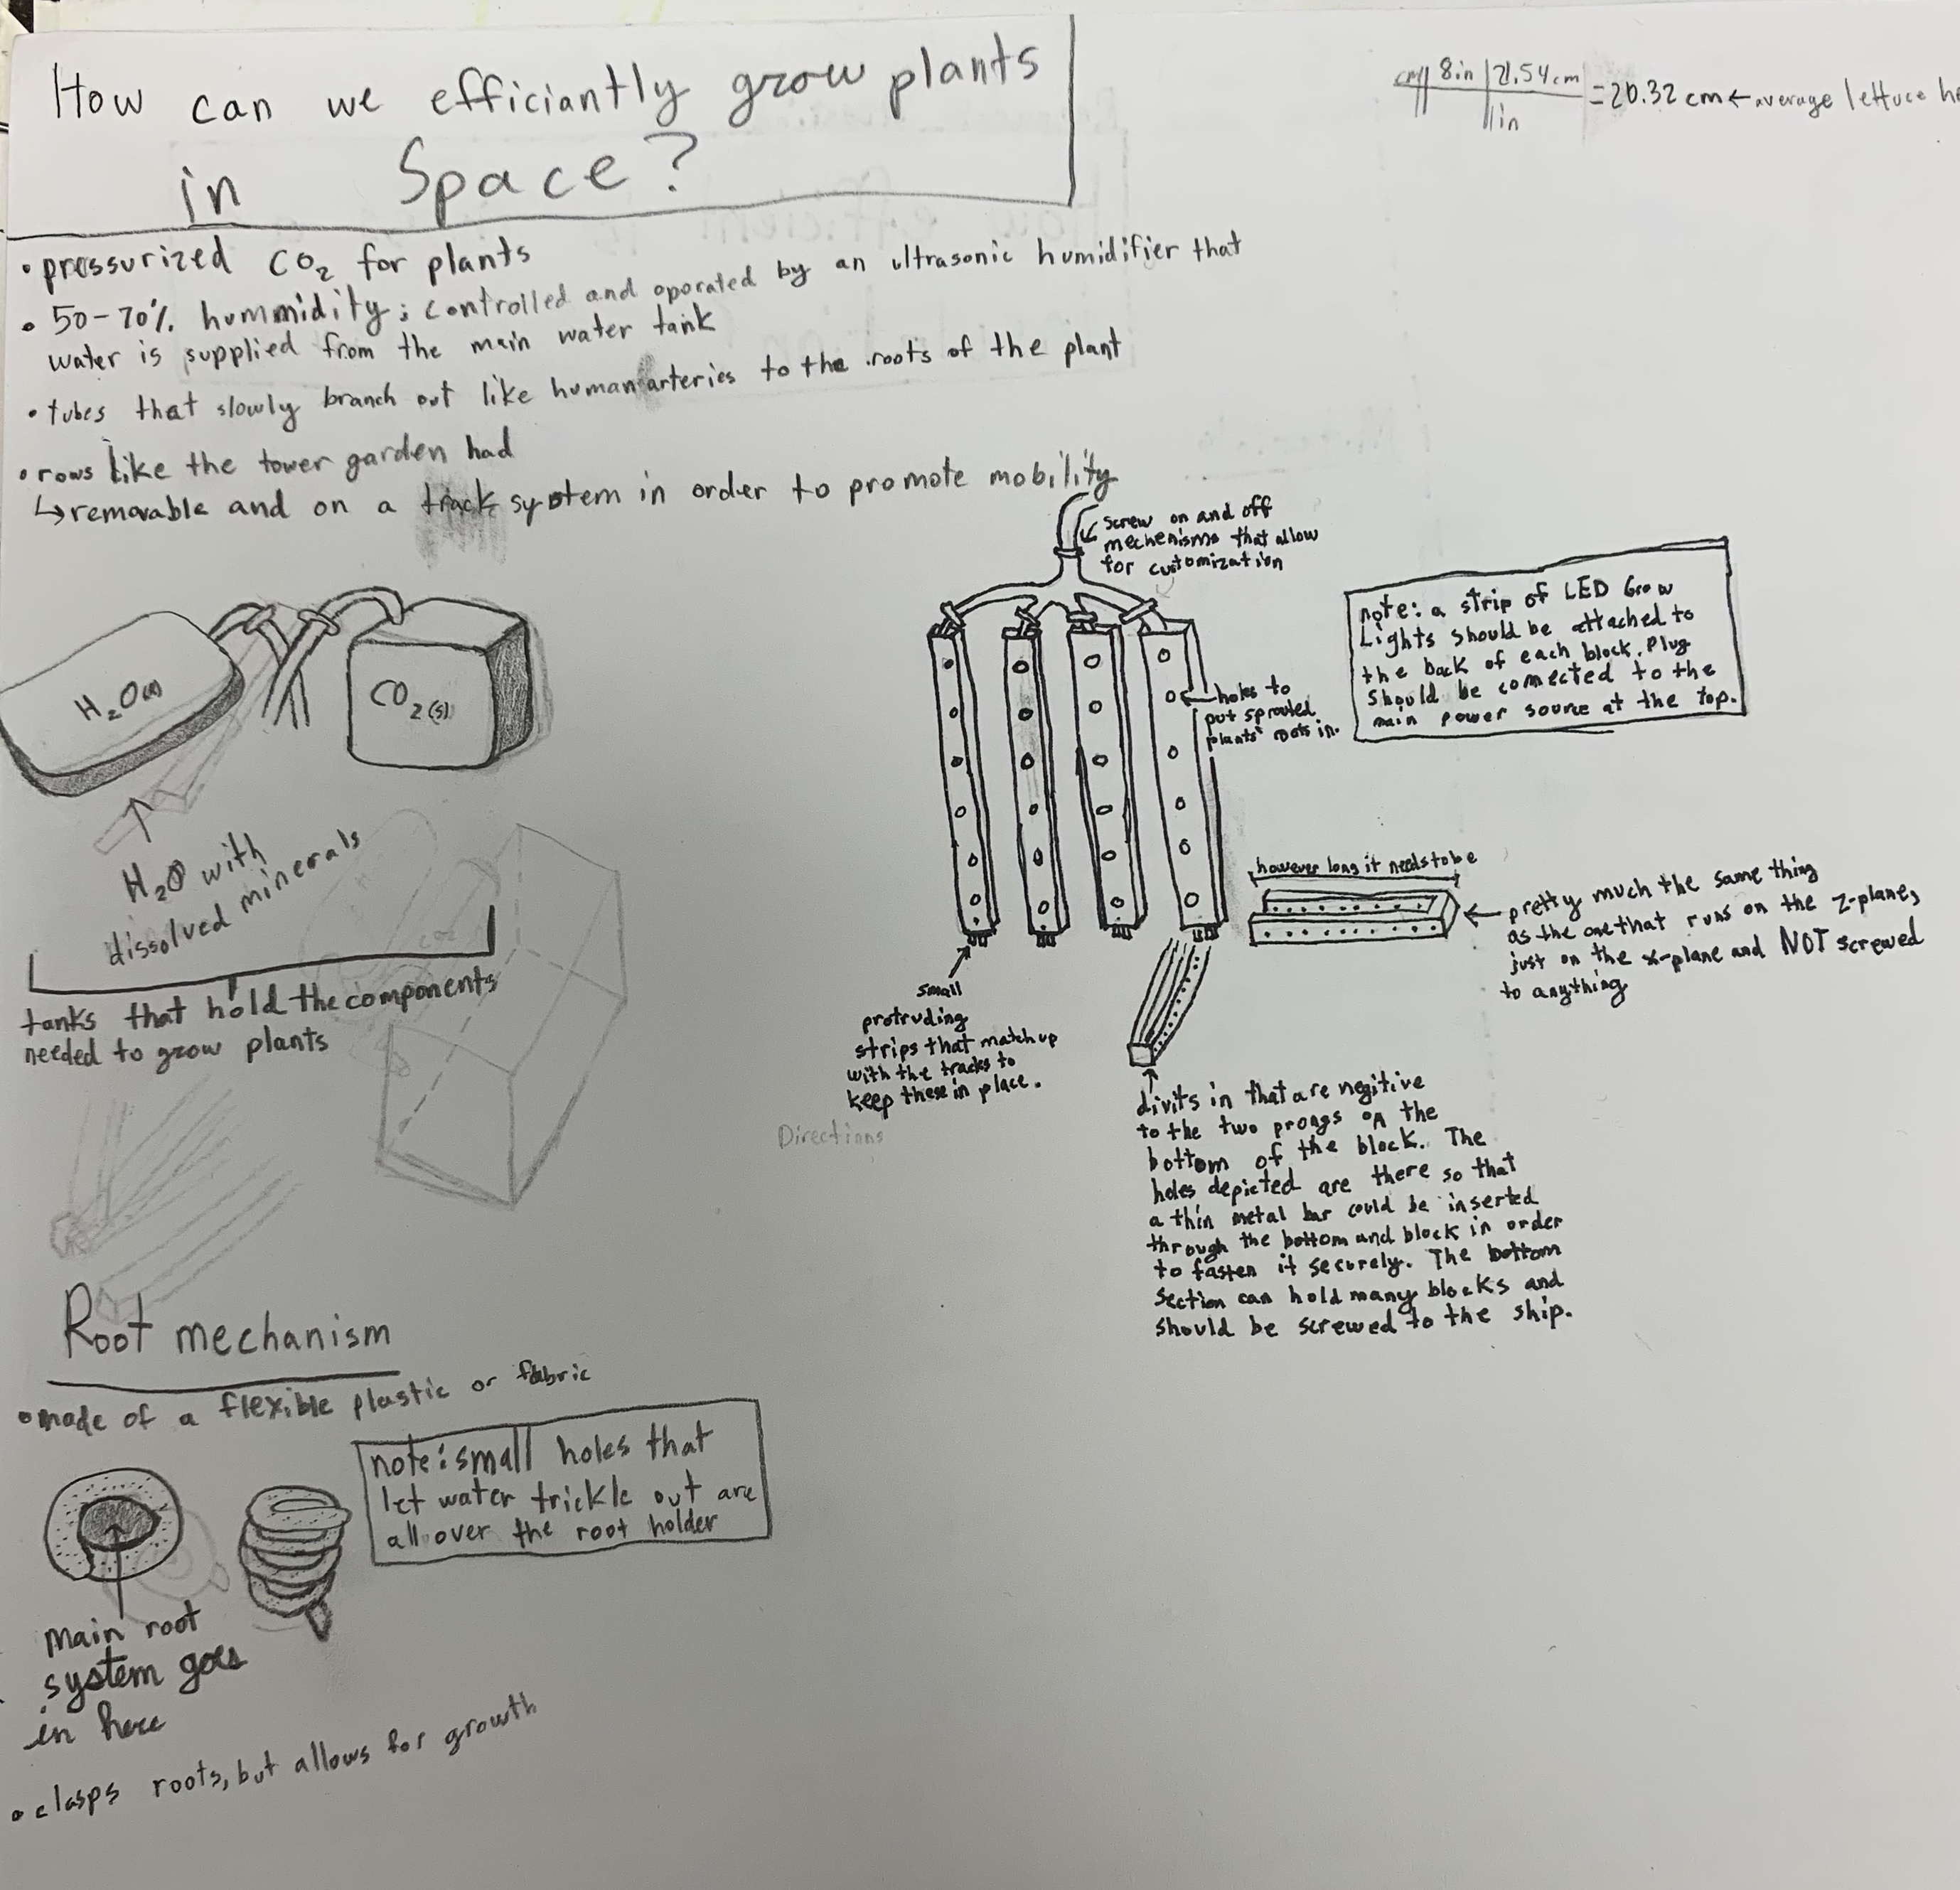 How can we efficiantly grow plants
in Space?
8in | 2.54cm
1in
=20.32 cm ← average lettuce he
• pressurized CO2 for plants
• 50-70% hummidity; controlled and oporated by an ultrasonic humidifier that
water is supplied from the main water tank
• tubes that slowly branch out like human arteries to the roots of the plant
• rows like the tower garden had
↳ removable and on a track system in order to promote mobility
screw on and off
mechenisms that allow
for customization
note: a strip of LED Grow
Lights should be attached to
the back of each block. Plug
should be connected to the
main power source at the top.
holes to
put sprouted
plants' roots in.
H2O(l)
CO2(s)
H2O with
dissolved minerals
tanks that hold the components
needed to grow plants
however long it needs to be
← pretty much the same thing
as the one that runs on the z-plane,
just on the x-plane and NOT screwed
to anything
small
protruding
strips that match up
with the tracks to
keep these in place.
Directions
divits in that are negitive
to the two prongs on the
bottom of the block. The
holes depicted are there so that
a thin metal bar could be inserted
through the bottom and block in order
to fasten it securely. The bottom
section can hold many blocks and
should be screwed to the ship.
Root mechanism
• made of a flexible plastic or fabric
note: small holes that
let water trickle out are
all over the root holder
Main root
system goes
in here
• clasps roots, but allows for growth